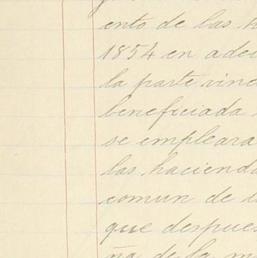 ento de las h
1854 en ade
la parte vinc
beneficiada
se empleara
las, hacienda
comun de
que despues
de la m